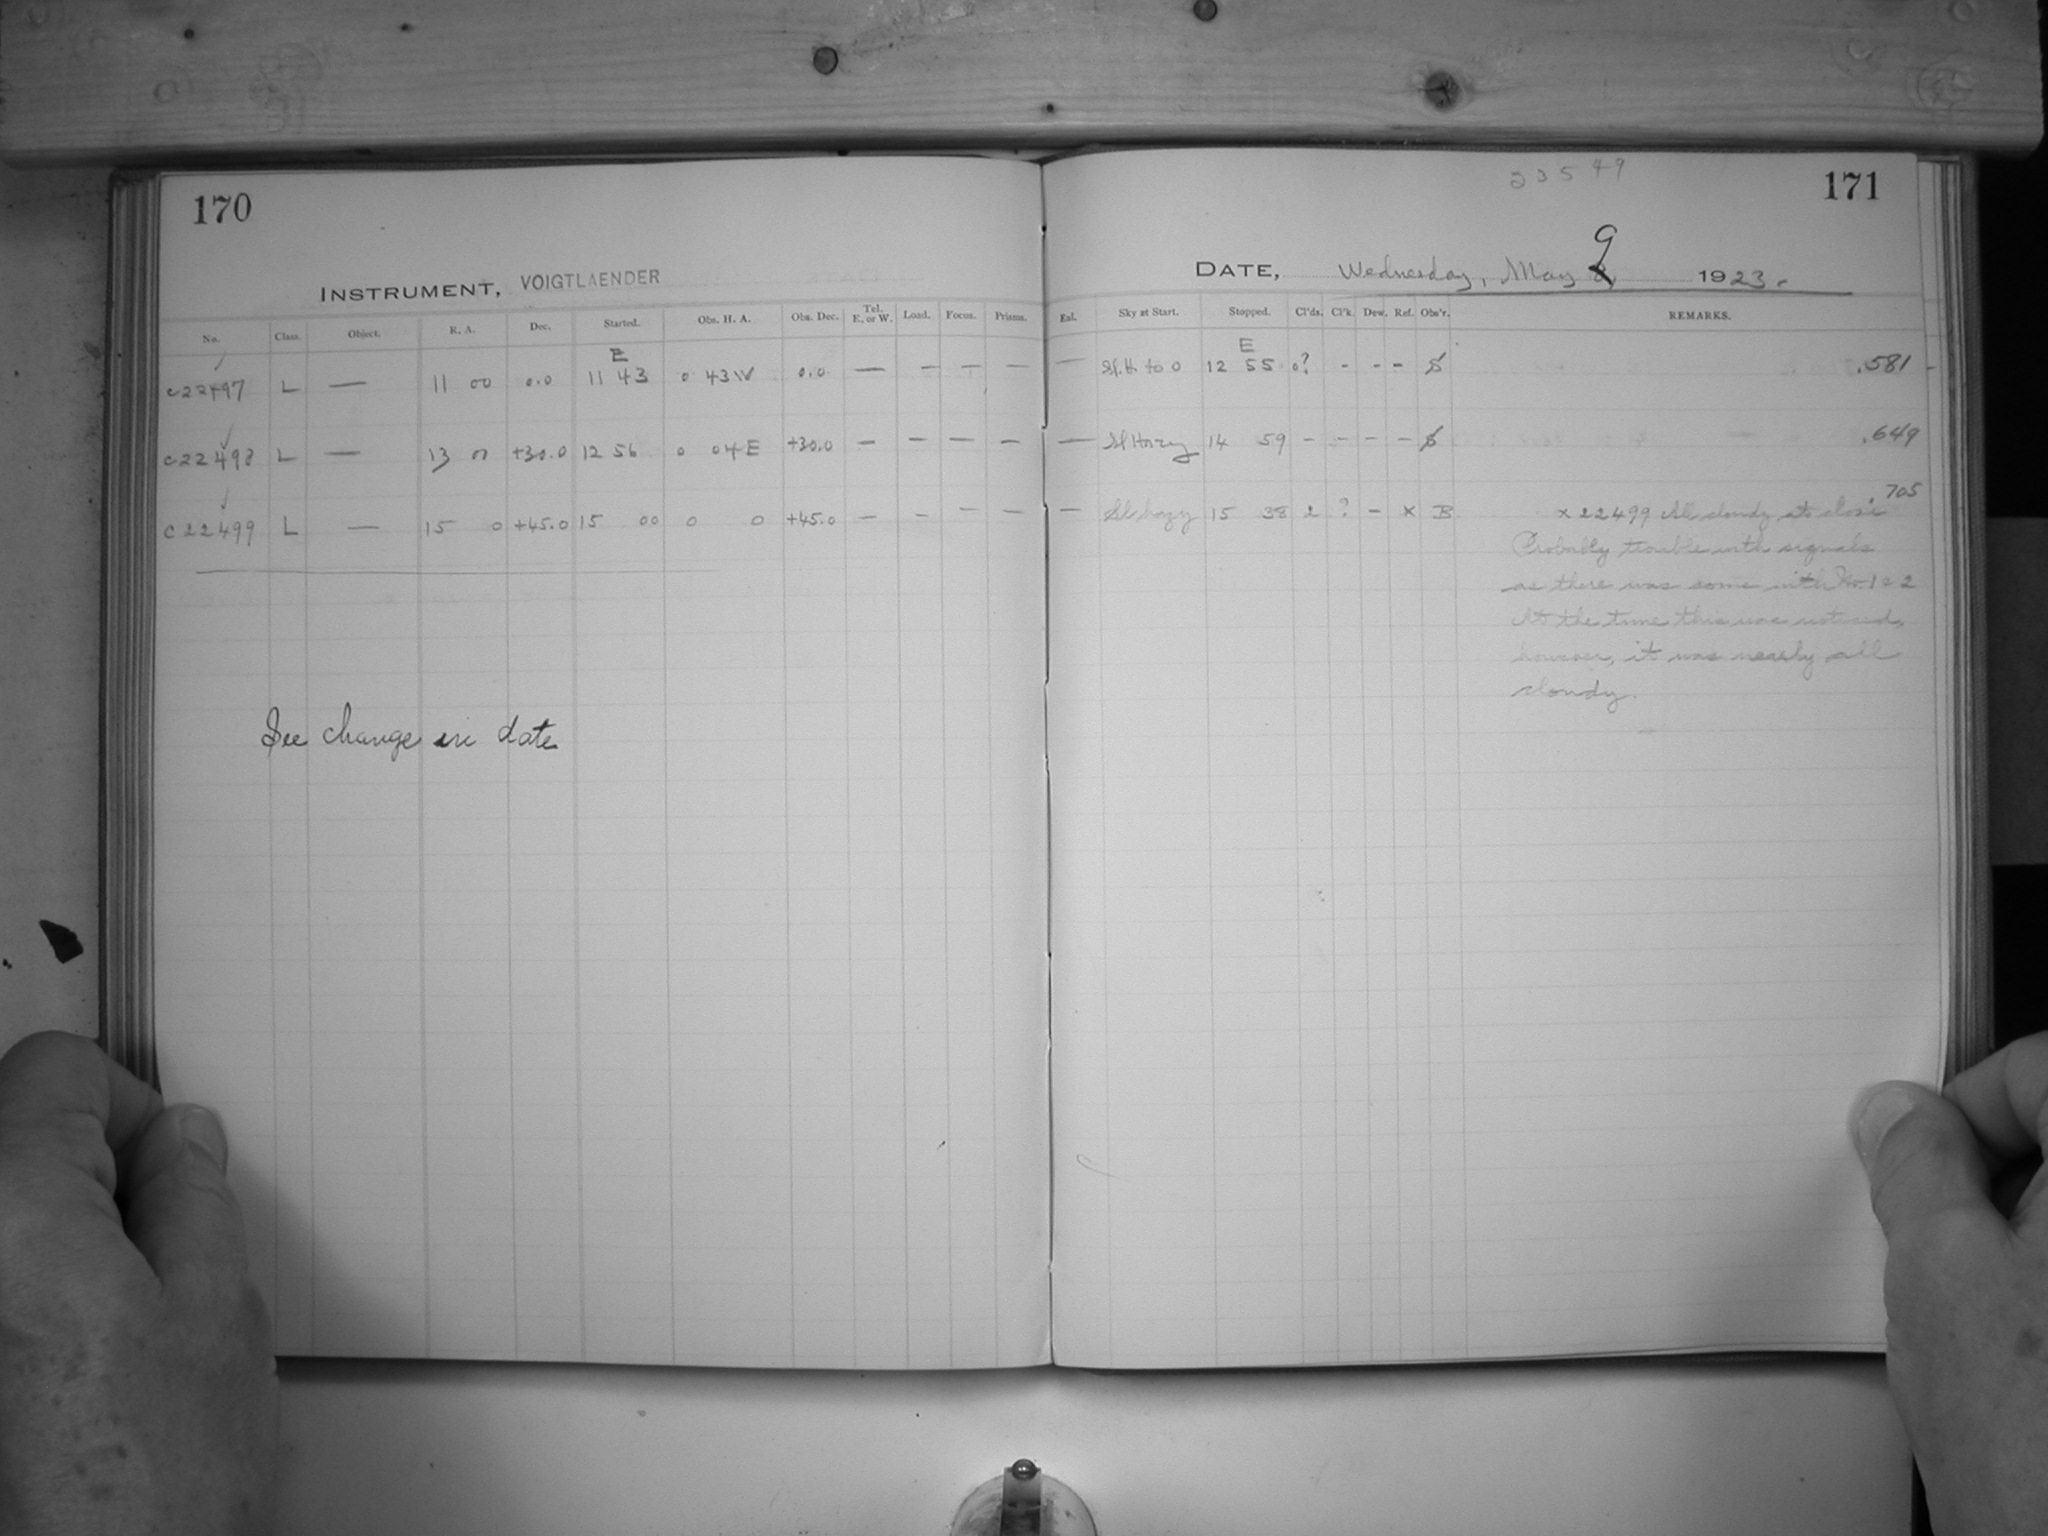 170
INSTRUMENT, VOIGTLAENDER
No. Class. Object. R. A. Dec. Started. Obs. H. A. Obs. Dec. Tel. E. or W. Load. Focus. Prisms.
E
c22497 L — 11 00 0.0 11 43 0 43W 0.0 — — — —
c22498 L — 13 0 +30.0 12 56 0 04E +30.0 — — — —
c22499 L — 15 0 +45.0 15 00 0 0 +45.0 — — — —
See change in date
23549
171
DATE, Wednesday, May 9 1923.
Eal. Sky at Start. Stopped. Cl'ds. Cl'k. Dew. Ref. Obs'r. REMARKS.
E
— Sl. H. to 0 12 55 0? - - - .581
— Sl Hazy 14 59 - - - - .649
— Sl. hazy 15 38 2 ? - x B .705
x 22499 All cloudy at close
Probably trouble with signals
as there was some with No. 1 & 2
At the time this was noticed,
however, it was nearly all
cloudy.